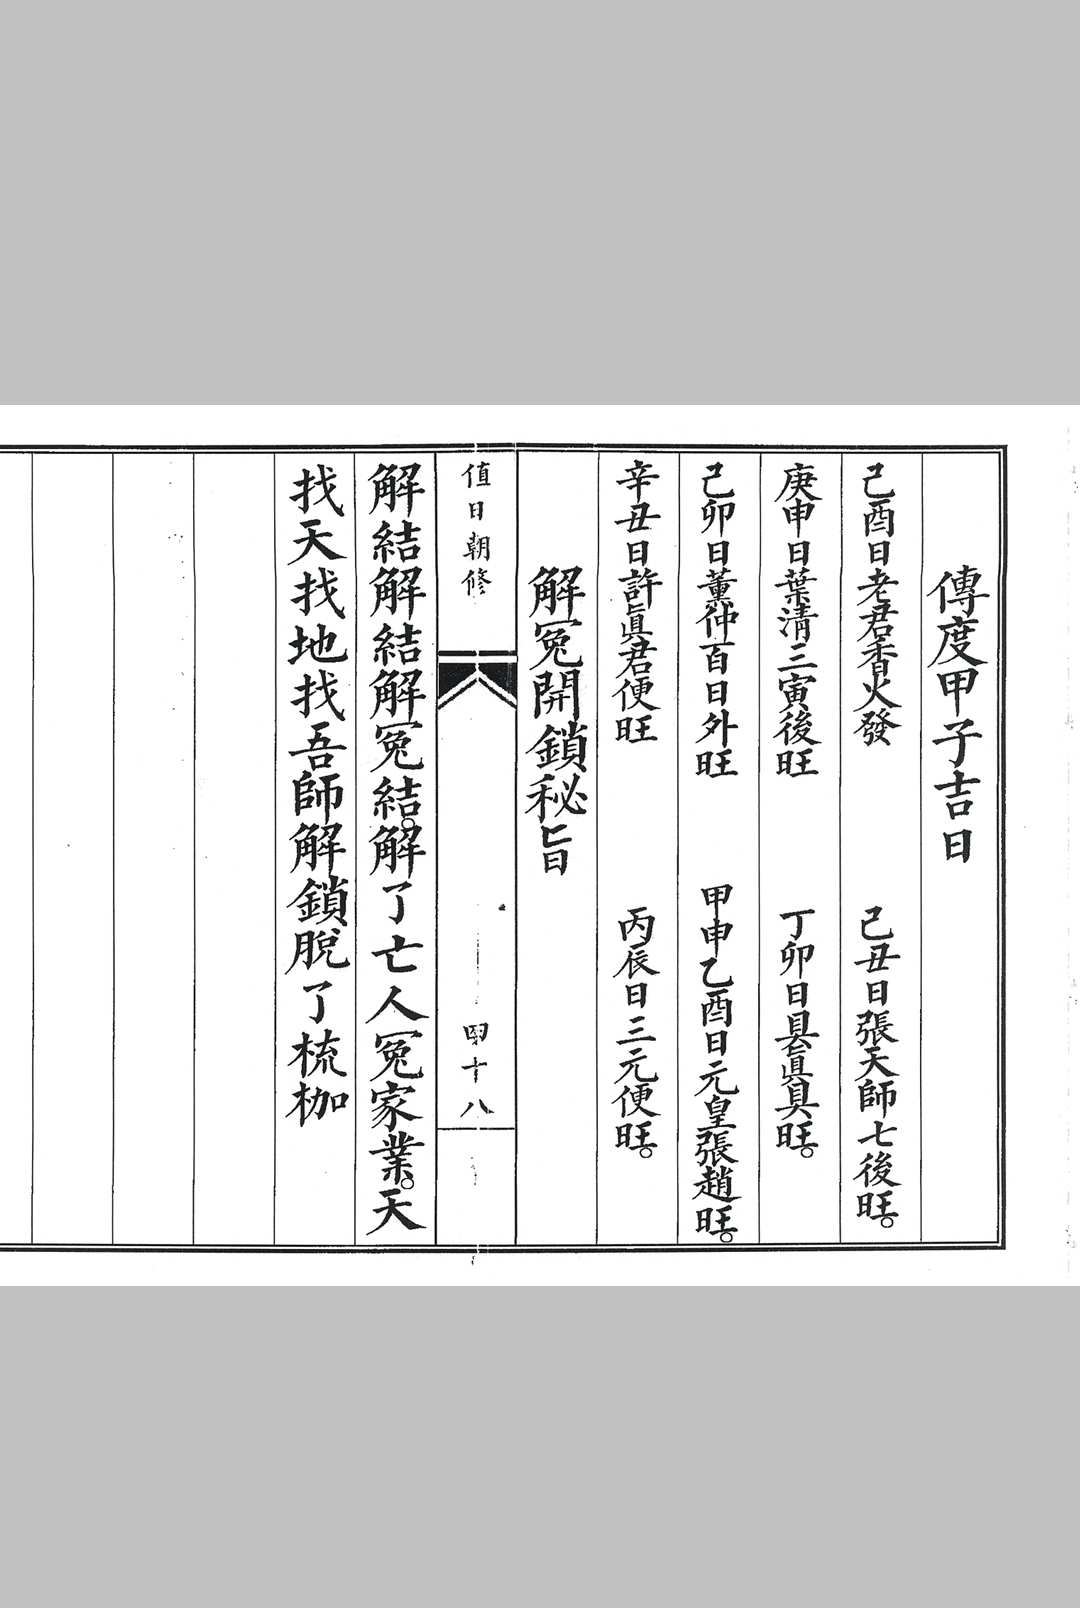 傳度甲子吉日
己酉日老君香火發　己丑日張天師七後旺。
庚申日葉清三寅後旺　丁卯日具眞具旺。
己卯日董仲百日外旺　甲申乙酉日元皇張趙旺。
辛丑日許眞君便旺　丙辰日三元便旺。
解冤開鎖秘旨
值日朝修　四十八
解結解結解冤結。解了亡人冤家業。天
找天找地找吾師解鎖脫了梳枷